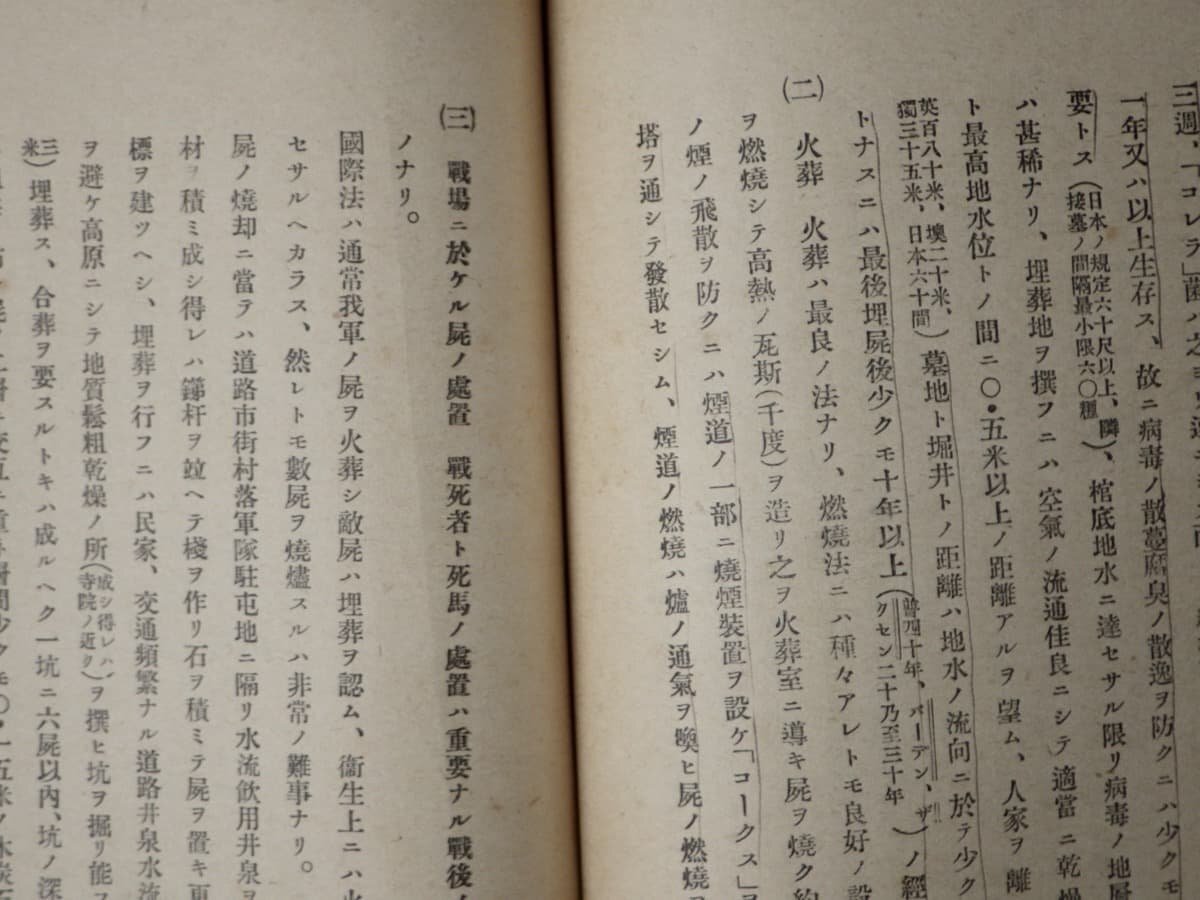 三週、「コレラ」菌ハ之ヨリ
一年又ハ以上生存ス、故ニ病毒ノ散蔓竝臭ノ散逸ヲ防クニハ少クモ
要トス(日本ノ規定六十尺以上、隣接墓ノ間隔最小限六〇糎)、棺底地水ニ達セサル限リ病毒ノ地層
ハ甚稀ナリ、埋葬地ヲ撰フニハ空氣ノ流通佳良ニシテ適當ニ乾燥
ト最高地水位トノ間ニ〇・五米以上ノ距離アルヲ望ム、人家ヲ離
英百八十米、墺二十米、獨三十五米、日本六十間)墓地ト堀井トノ距離ハ地水ノ流向ニ於テ少ク
トナスニハ最後埋屍後少クモ十年以上(普四十年、バーデン、ザクセン二十乃至三十年)ノ經
(二) 火葬 火葬ハ最良ノ法ナリ、燃燒法ニハ種々アレトモ良好ノ設
ヲ燃燒シテ高熱ノ瓦斯(千度)ヲ造リ之ヲ火葬室ニ導キ屍ヲ燒ク約
ノ煙ノ飛散ヲ防クニハ煙道ノ一部ニ燒煙裝置ヲ設ケ「コークス」ヲ
塔ヲ通シテ發散セシム、煙道ノ燃燒ハ爐ノ通氣ヲ喚ヒ屍ノ燃燒
(三) 戰場ニ於ケル屍ノ處置 戰死者ト死馬ノ處置ハ重要ナル戰後ノ
ノナリ。
國際法ハ通常我軍ノ屍ヲ火葬シ敵屍ハ埋葬ヲ認ム、衞生上ニハ火
セサルヘカラス、然レトモ數屍ヲ燒燼スルハ非常ノ難事ナリ。
屍ノ燒却ニ當テハ道路市街村落軍隊駐屯地ニ隔リ水流飮用井泉ヲ
材ヲ積ミ成シ得レハ鐵杆ヲ竝ヘテ棧ヲ作リ石ヲ積ミテ屍ヲ置キ更
標ヲ建ツヘシ、埋葬ヲ行フニハ民家、交通頻繁ナル道路井泉水流
ヲ避ケ高原ニシテ地質鬆粗乾燥ノ所(成シ得レハ寺院ノ近ク)ヲ撰ヒ坑ヲ掘リ能フ
三米)埋葬ス、合葬ヲ要スルトキハ成ルヘク一坑ニ六屍以內、坑ノ深
層ニ交互ニ重ネ層間少クモ〇・一五米ノ木炭